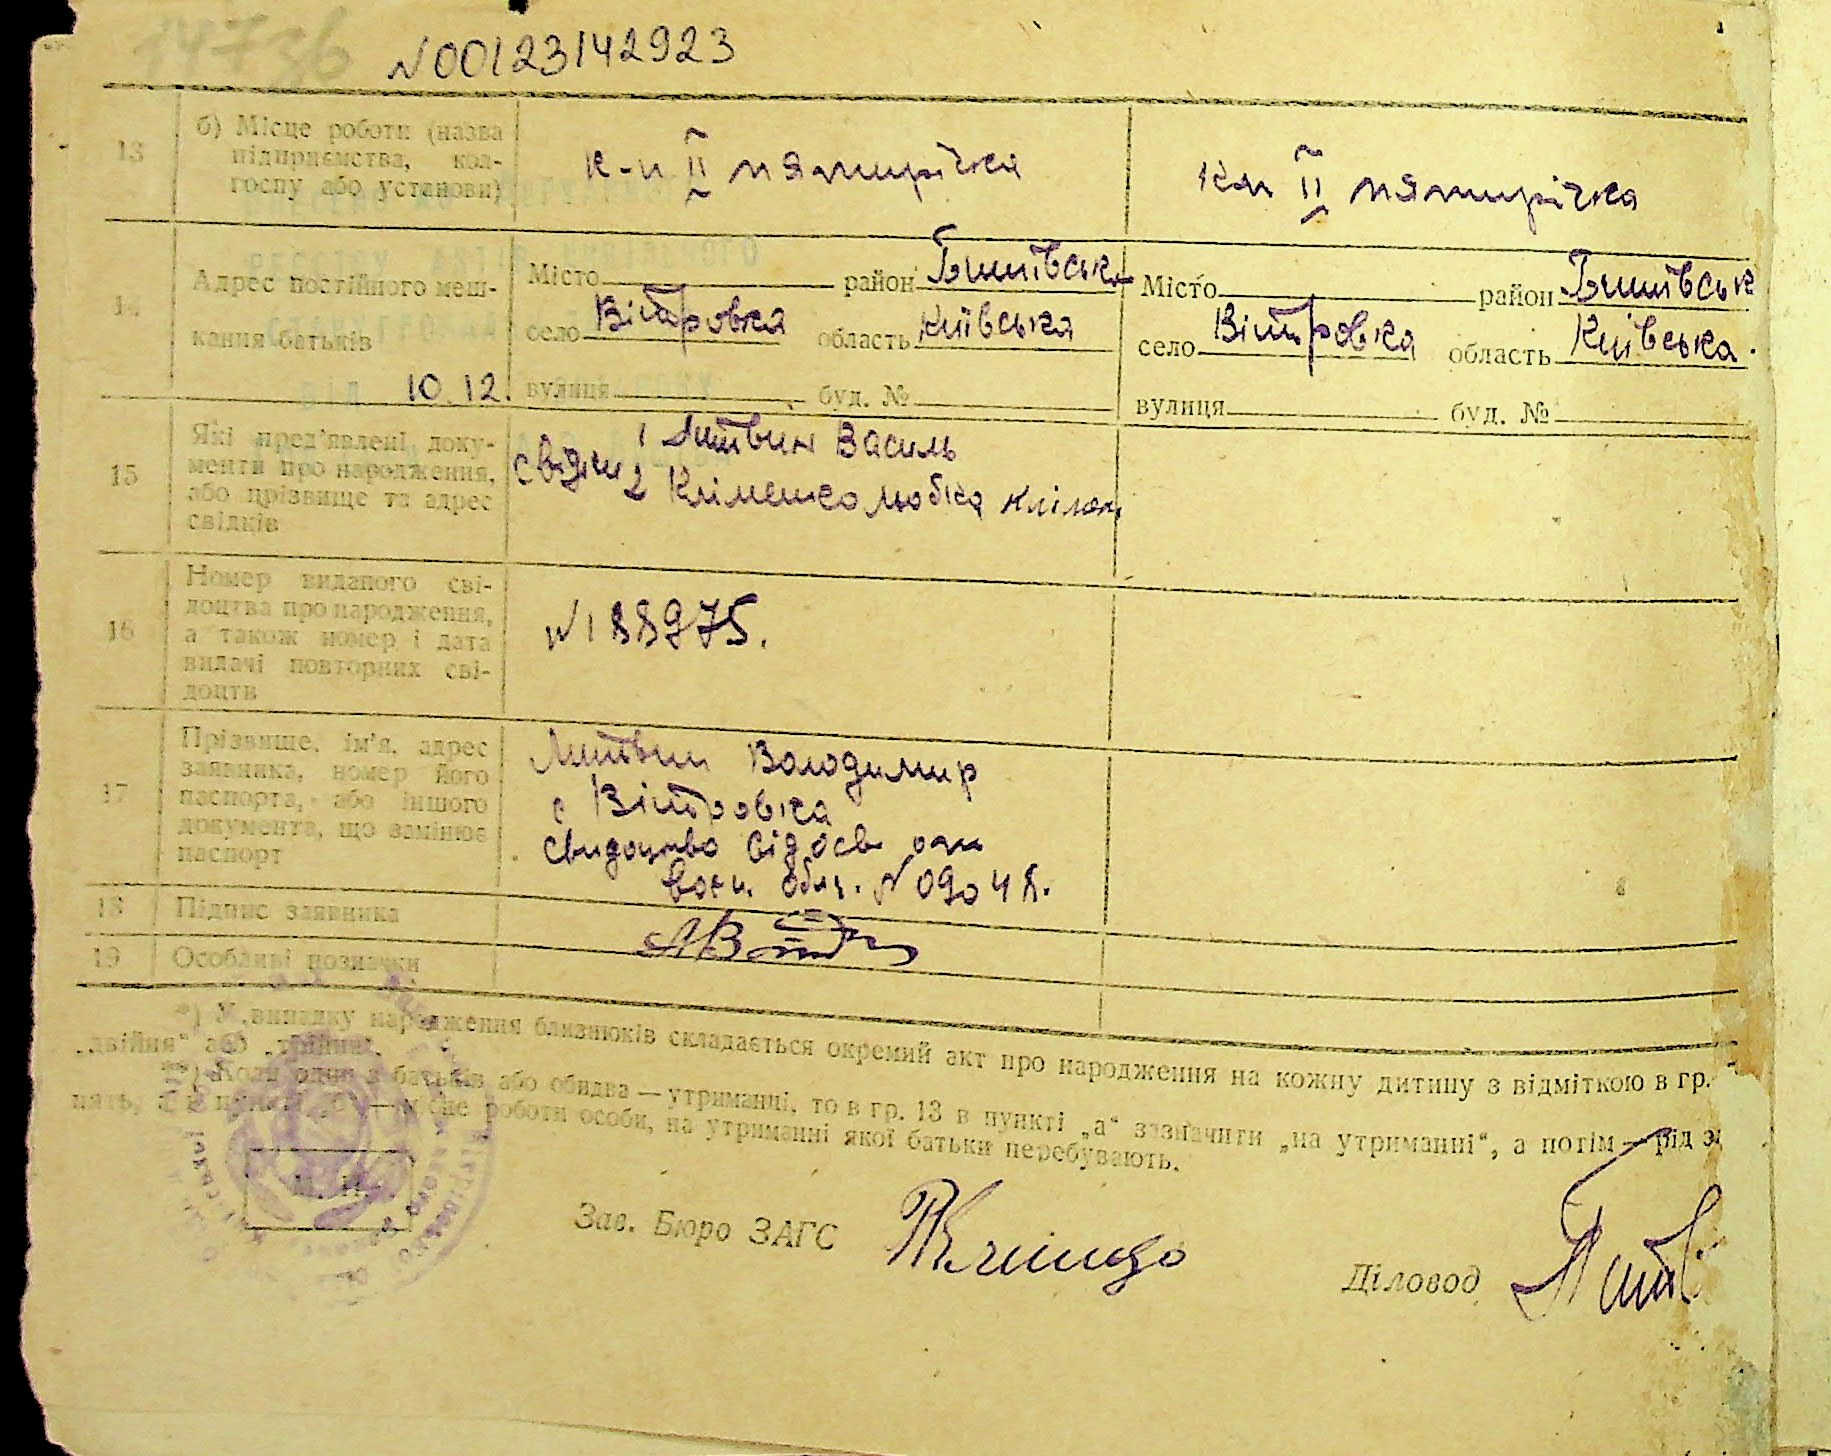 N00123142923
13 б) Місце роботи (назва
підприємства, кол-
госпу або установи)
к-п ІІ пятирічка
кп ІІ пятирічка
14 Адрес постійного меш-
кання батьків
Місто район Бишівськ
село Вітровка область Київська
вулиця буд. №
Місто район Бишівськ
село Вітровка область Київська.
вулиця буд. №
10.12.
15 Які пред'явлені доку-
менти про народження,
або прізвище та адрес
свідків
1 Литвин Василь
свідки 2 Кліменко
16 Номер виданого сві-
доцтва про народження,
а також номер і дата
видачі повторних сві-
доцтв
N188975.
17 Прізвище, ім'я, адрес
заявника, номер його
паспорта, або іншого
документа, що замінює
паспорт
Литвин Володимир
с Вітровка
свидоцтво від осв
воєн. обяз. N 09048.
18 Підпис заявника
19 Особливі позначки
*) У випадку народження близнюків складається окремий акт про народження на кожну дитину з відміткою в гр.
„двійня" або „трійня".
**) Коли один з батьків або обидва — утриманці, то в гр. 13 в пункті „а" зазначити „на утриманні", а потім — рід
роботи особи, на утриманні якої батьки перебувають.
М. П.
Зав. Бюро ЗАГС
Діловод